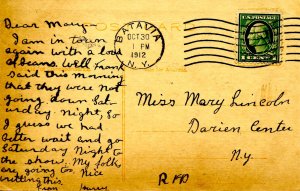 Dear Mary -
I am in town
again with a load
of beans. Well, Frank
said this morning
that they were not
going down Sat-
urday, Night, So
I guess we had
better wait and go
Saturday Night to
the show. My folk
are going to. Nice
writing this.
From
POST CARD
BATAVIA
OCT 30
1 PM
1912
N.Y.
U.S. POSTAGE
1 CENT 1
Miss Mary Lincoln
Darien Center
N.Y.
RFD